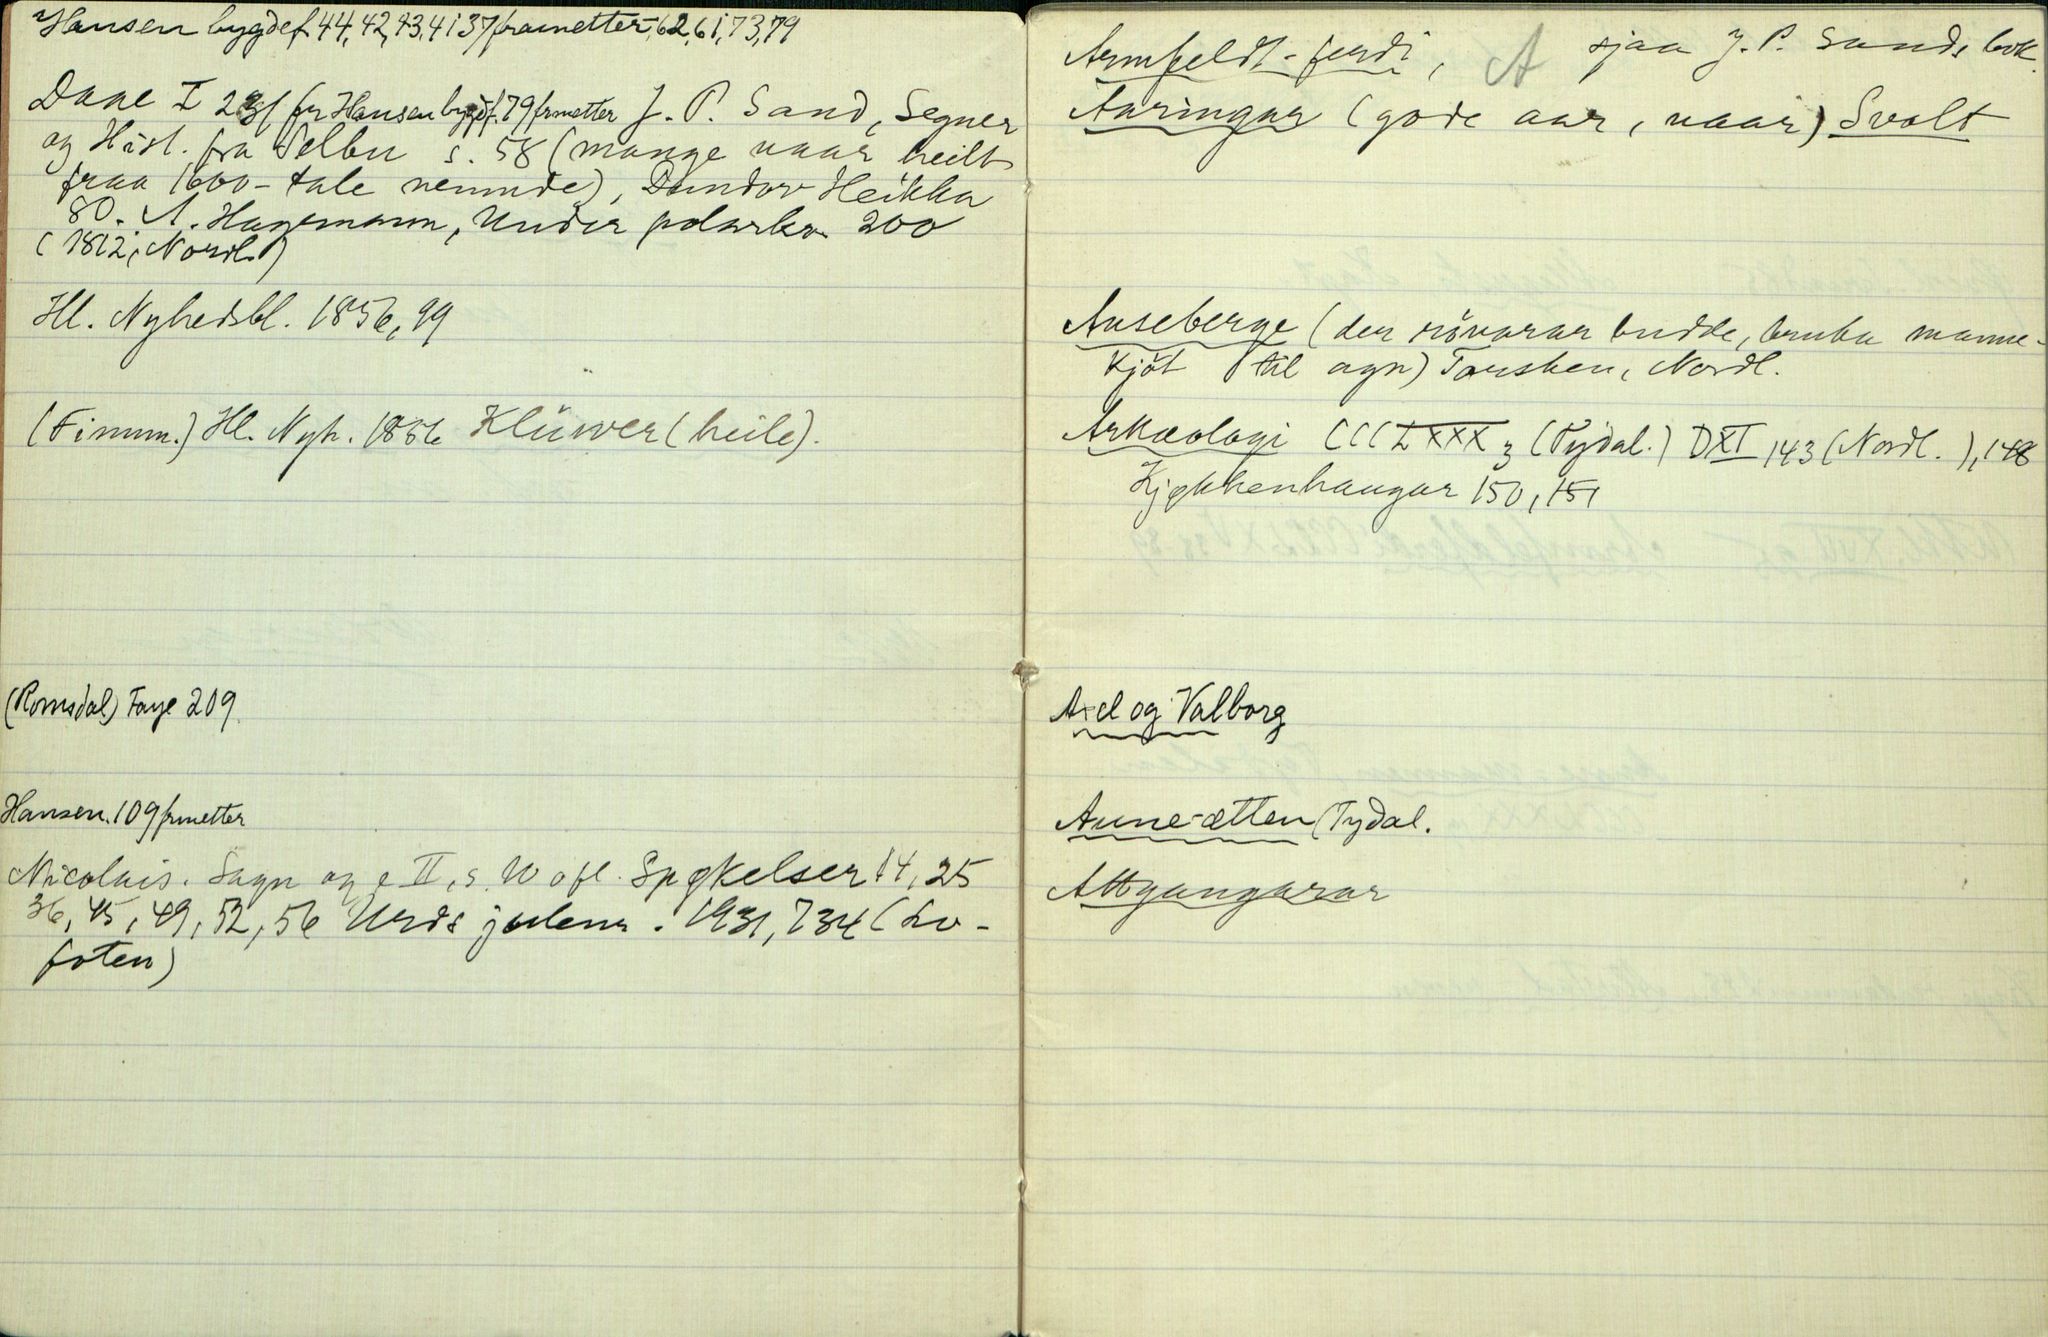 Hansen bygdef. 44, 42, 43, 41 37 frametter, 62, 61, 73, 79
Daae I 23 f fr Hansen bygdf. 79 frmetter J. P. Sand, Segner
og Hist. fra Selbu s. 58 (mange uaar heilt
fraa 1600-tale nemnde), Dundor-Heikka
80. A. Hagemann, Under polarkr. 200
(1812, Nordl.)
Ill. Nyhedsbl. 1856, 99
(Finnm.) Ill. Nyh. 1856 Klüwer (heile).
(Romsdal) Faye 209
Hansen. 109 frmetter
Nicolais. Sagn og e II, s. 10 ofl. Spøkelser 14, 25
36, 45, 49, 52, 56 Urds julenr. 1931, 734 (Lo-
foten)
Armfeldt-ferdi, A sjaa J. P. Sands bok.
Aaringar (gode aar, uaar) Svolt
Aaseberge (der rövarar budde, bruka manne-
kjöt til agn) Torsken, Nordl.
Arkæologi CCCLXXX 3 (Tydal.) DXI 143 (Nordl.), 148
Kjøkkenhaugar 150, 151
Axel og Valborg
Aune-ætten (Tydal.
Attgangarar